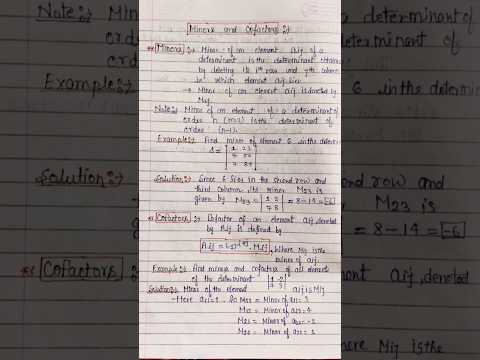 Minors and Cofactors :-
Minors :- Minor of an element aij of a
determinant is the determinant obtained
by deleting its ith row and jth column
in which element aij lies
→ Minor of an element aij is denoted by
Mij.
Note :- Minor of an element of a determinant of
order n (n≥2) is the determinant of
order (n-1).
Example :- Find minor of element 6 in the determinant
Δ =
Solution :- Since 6 lies in the second row and
third column, its minor M23 is
given by M23 = |1 2
7 8| = 8-14 = -6
Cofactors :- Cofactor of an element aij, denoted
by Aij is defined by
Aij = (-1)^i+j . Mij, where Mij is the
minor of aij.
Example :- Find minors and cofactors of all elements
of the determinant |1 -2
4 3|
Solution :- Minor of the element aij is Mij
-Here a11 = 1 So M11 = Minor of a11 = 3
M12 = Minor of a12 = 4
M21 = Minor of a21 = -2
M22 = Minor of a22 = 1